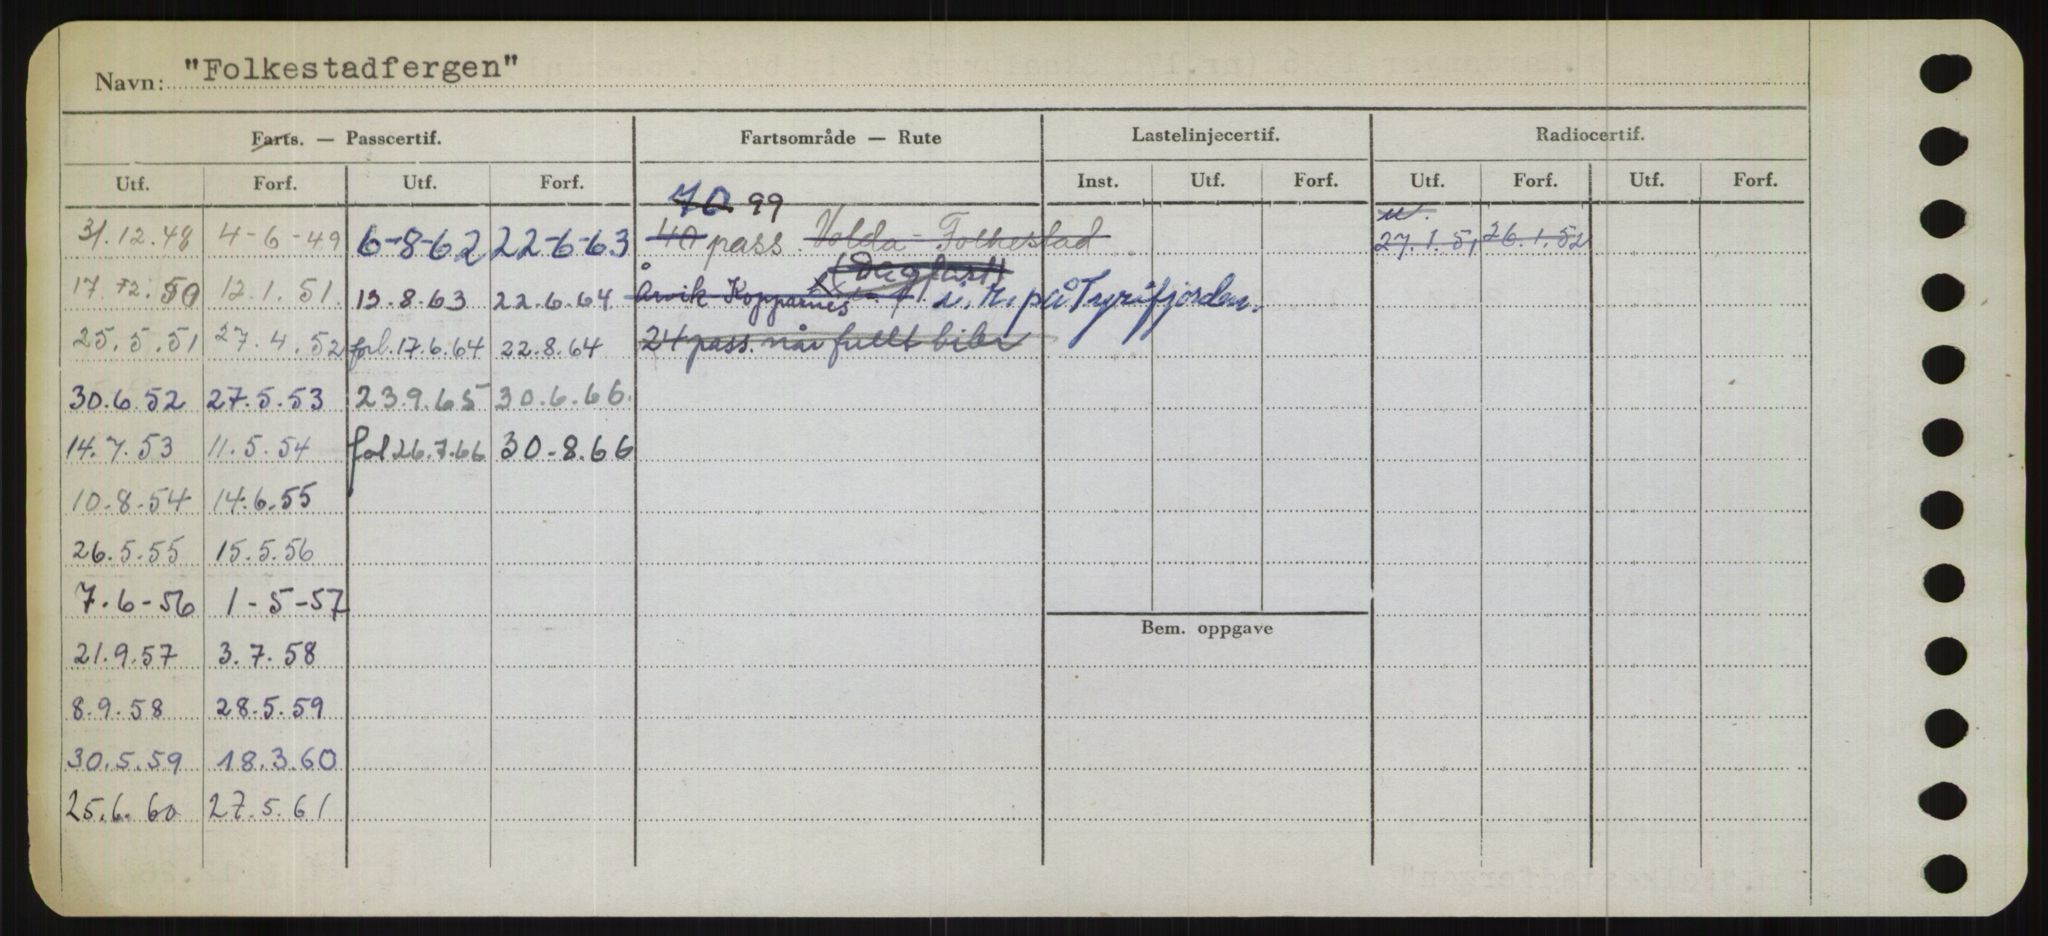 Navn: "Folkestadfergen"
Farts. — Passcertif. Fartsområde — Rute Lastelinjecertif. Radiocertif.
Utf. Forf. Utf. Forf. Inst. Utf. Forf. Utf. Forf. Utf. Forf.
70 99
31.12.48 4-6-49 6-8-62 22-6-63 40 pass. Volda - Folkestad 27.1.51 26.1.52
(Dagfart)
17.12.50 12.1.51. 13.8.63 22.6.64 Årvik Kopparnes i. r. på Tyrifjorden.
25.5.51 27.4.52 forl. 17.6.64 22.8.64 24 pass. når fullt biler
30.6.52 27.5.53 23.9.65 30.6.66.
14.7.53 11.5.54 fol 26.7.66 30-8.66
10.8.54 14.6.55
26.5.55 15.5.56
7.6-56 1-5-57
Bem. oppgave
21.9.57 3.7.58
8.9.58 28.5.59
30.5.59 18.3.60
25.6.60 27.5.61